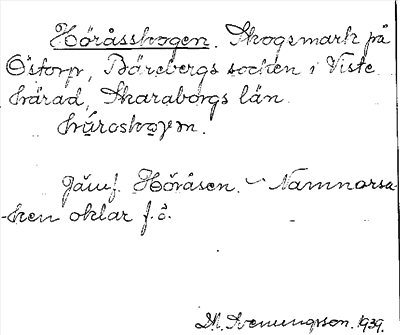 Höråsskogen. Skogsmark på
Östorp, Bärebergs socken i Viste
härad, Skaraborgs län.
hű̄roskoγm.
Jämf. Höråsen. – Namnorsa-
ken oklar f. ö.
M. Svenungson. 1939.